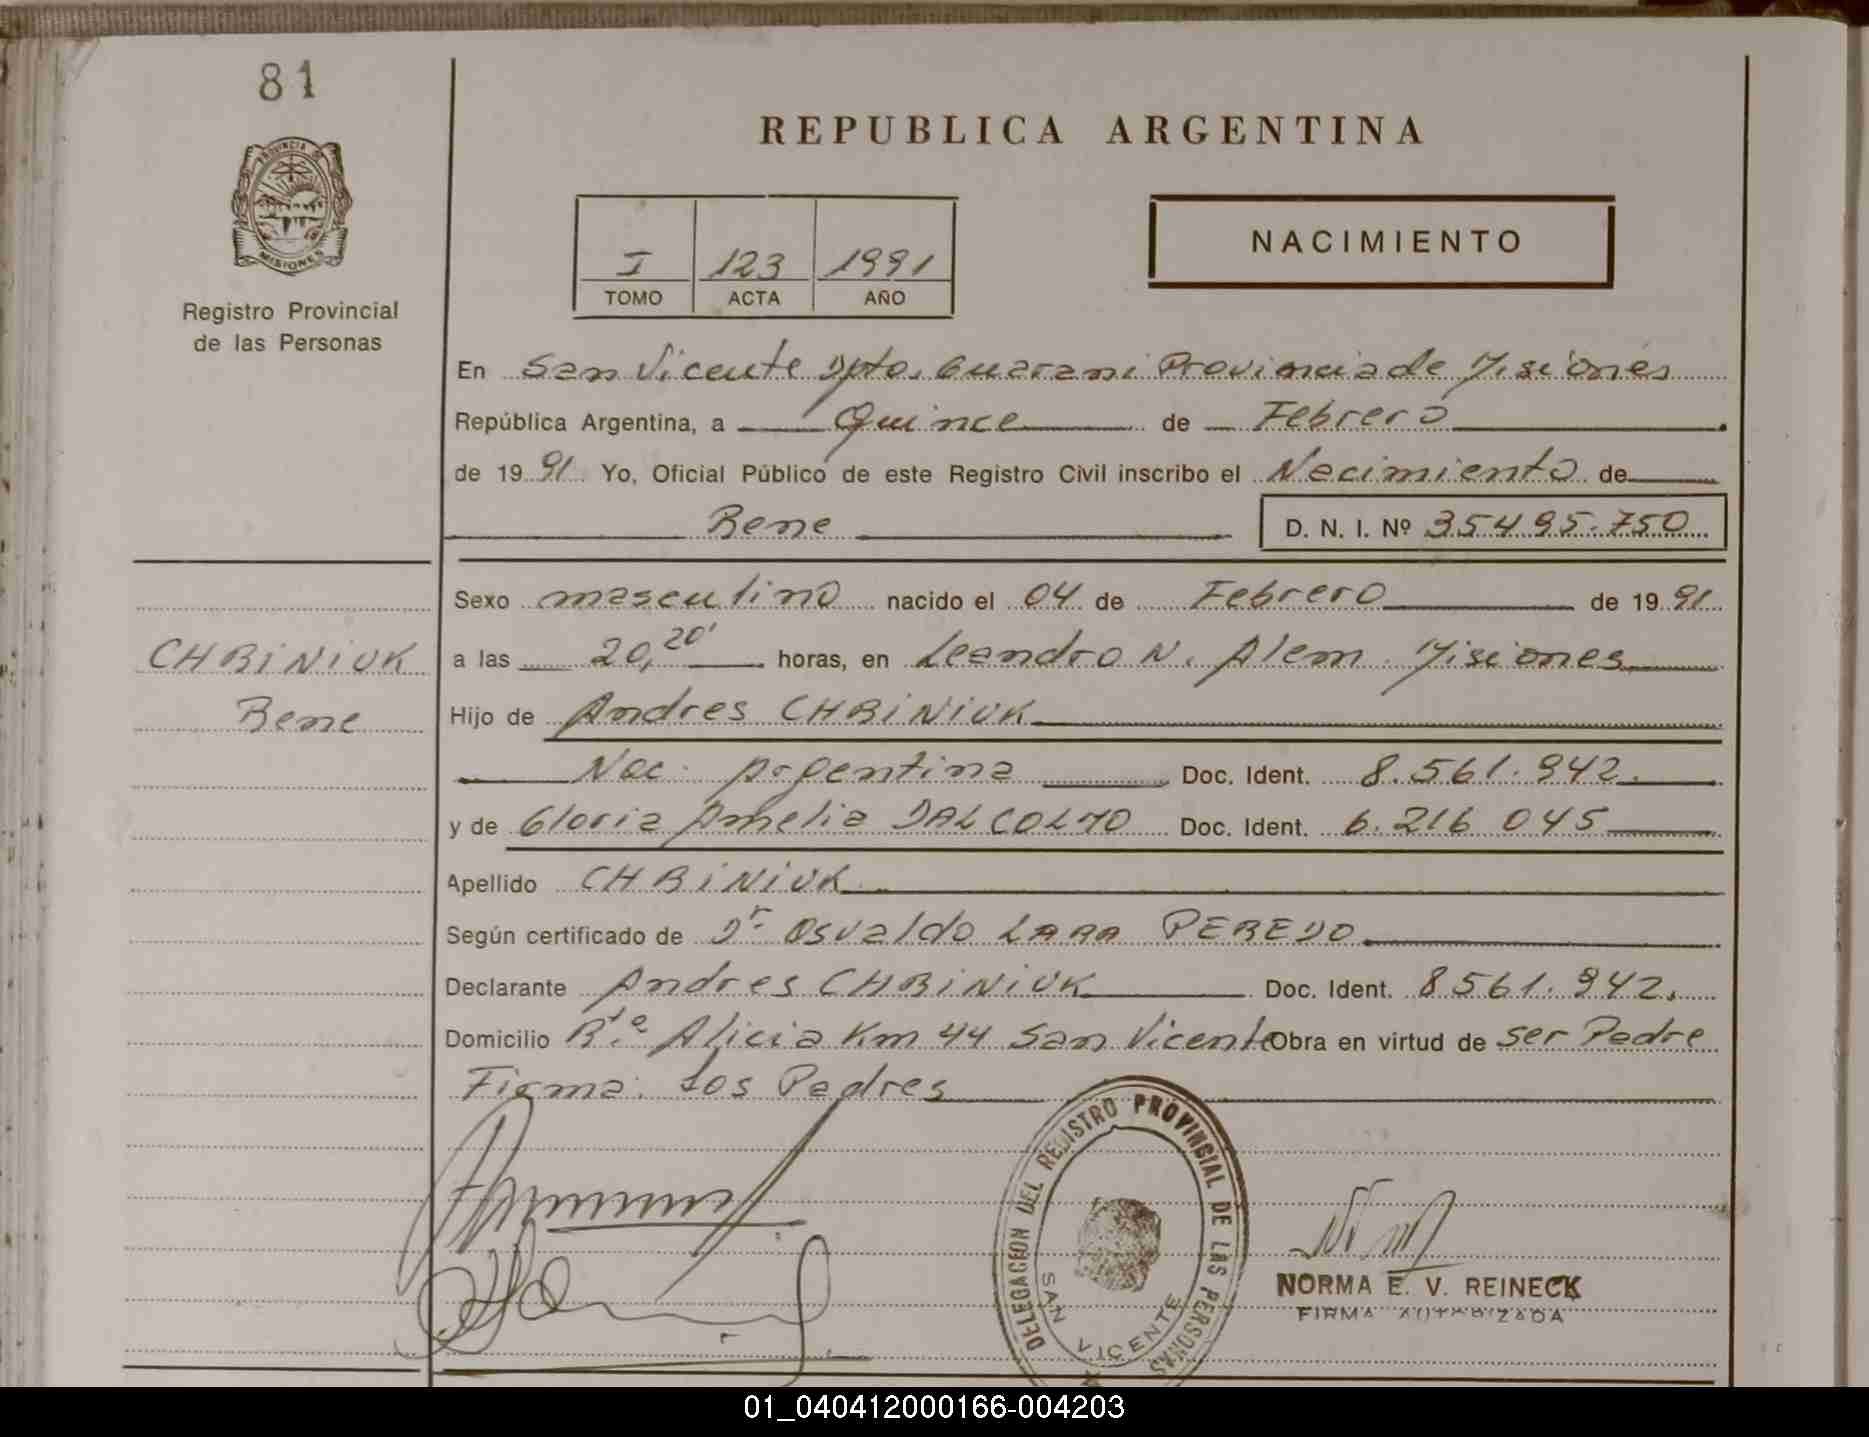 81
REPUBLICA ARGENTINA
PROVINCIA DE
MISIONES
I 123 1991
TOMO ACTA AÑO
NACIMIENTO
Registro Provincial
de las Personas
En San Vicente Dpto. Guarani Provincia de Misiones
República Argentina, a Quince de Febrero
de 1991 Yo, Oficial Público de este Registro Civil inscribo el Nacimiento de
Rene D. N. I. Nº 35495.750
Sexo masculino nacido el 04 de Febrero de 1991
CHRiNiUK
Rene
a las 20,20' horas, en Leandro N. Alem. Misiones
Hijo de Andres CHRiNiUK
Nac. Argentina Doc. Ident. 8.561.942.
y de Gloria Amelia DALCOLMO Doc. Ident. 6.216 045
Apellido CHRiNiUK
Según certificado de Dr. Osvaldo LARA PEREDO
Declarante Andres CHRiNiUK Doc. Ident. 8561.942.
Domicilio Rta. Alicia Km 44 San Vicente Obra en virtud de ser Padre
Firma: Los Padres
DELEGACION DEL REGISTRO PROVINCIAL DE LAS PERSONAS
SAN VICENTE
NORMA E. V. REINECK
FIRMA AUTORIZADA
01_040412000166-004203